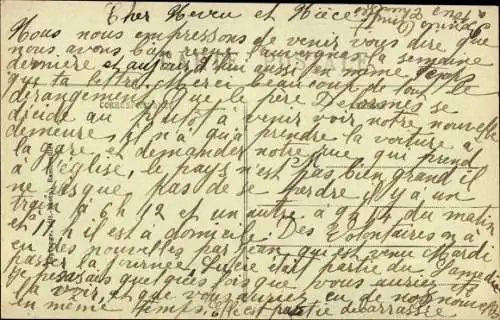 Cher Neveu et Nièce
Nous nous empressons de venir vous dire que
nous avons bien reçu la semaine
dernière et aujourd'hui aussi en même temps
que ta lettre. Merci beaucoup de tout le
dérangement que le père se
CORRESPONDANCE
décide au plutôt a venir voir notre nouvelle
demeure, il n'a qu'a prendre la voiture a
la gare et demander notre rue qui prend
a l'église, le pays n'est pas bien grand il
ne risque pas de se perdre il y a un
train a 6h12 et un autre a 9h14 du matin
et il est a domicile. Des Volontaires on a
eu des nouvelles par Jean qui est venu Mardi
passer la journée, Lucie était partie du Samedi
je pensais que quelques fois que vous auriez été
la voir, et que vous auriez eu de nos nouvelles
en même temps. Elle est partie débarrassée